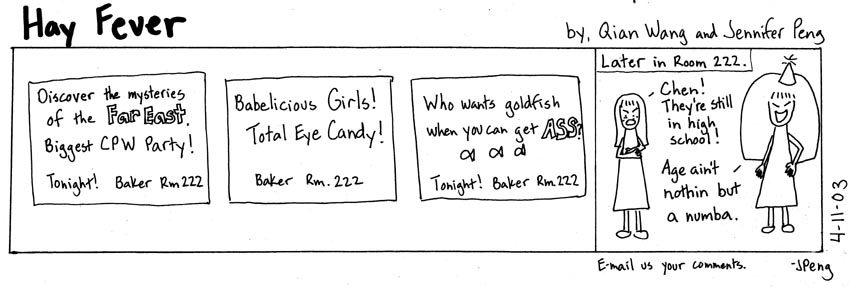 Hay Fever
by, Qian Wang and Jennifer Peng
Discover the mysteries
of the Far East.
Biggest CPW Party!
Tonight! Baker Rm 222
Babelicious Girls!
Total Eye Candy!
Baker Rm. 222
Who wants goldfish
when you can get ASS?
Tonight! Baker Rm 222
Later in Room 222.
Chen!
They're still
in high
school!
Age ain't
nothin but
a numba.
4-11-03
E-mail us your comments.
-JPeng